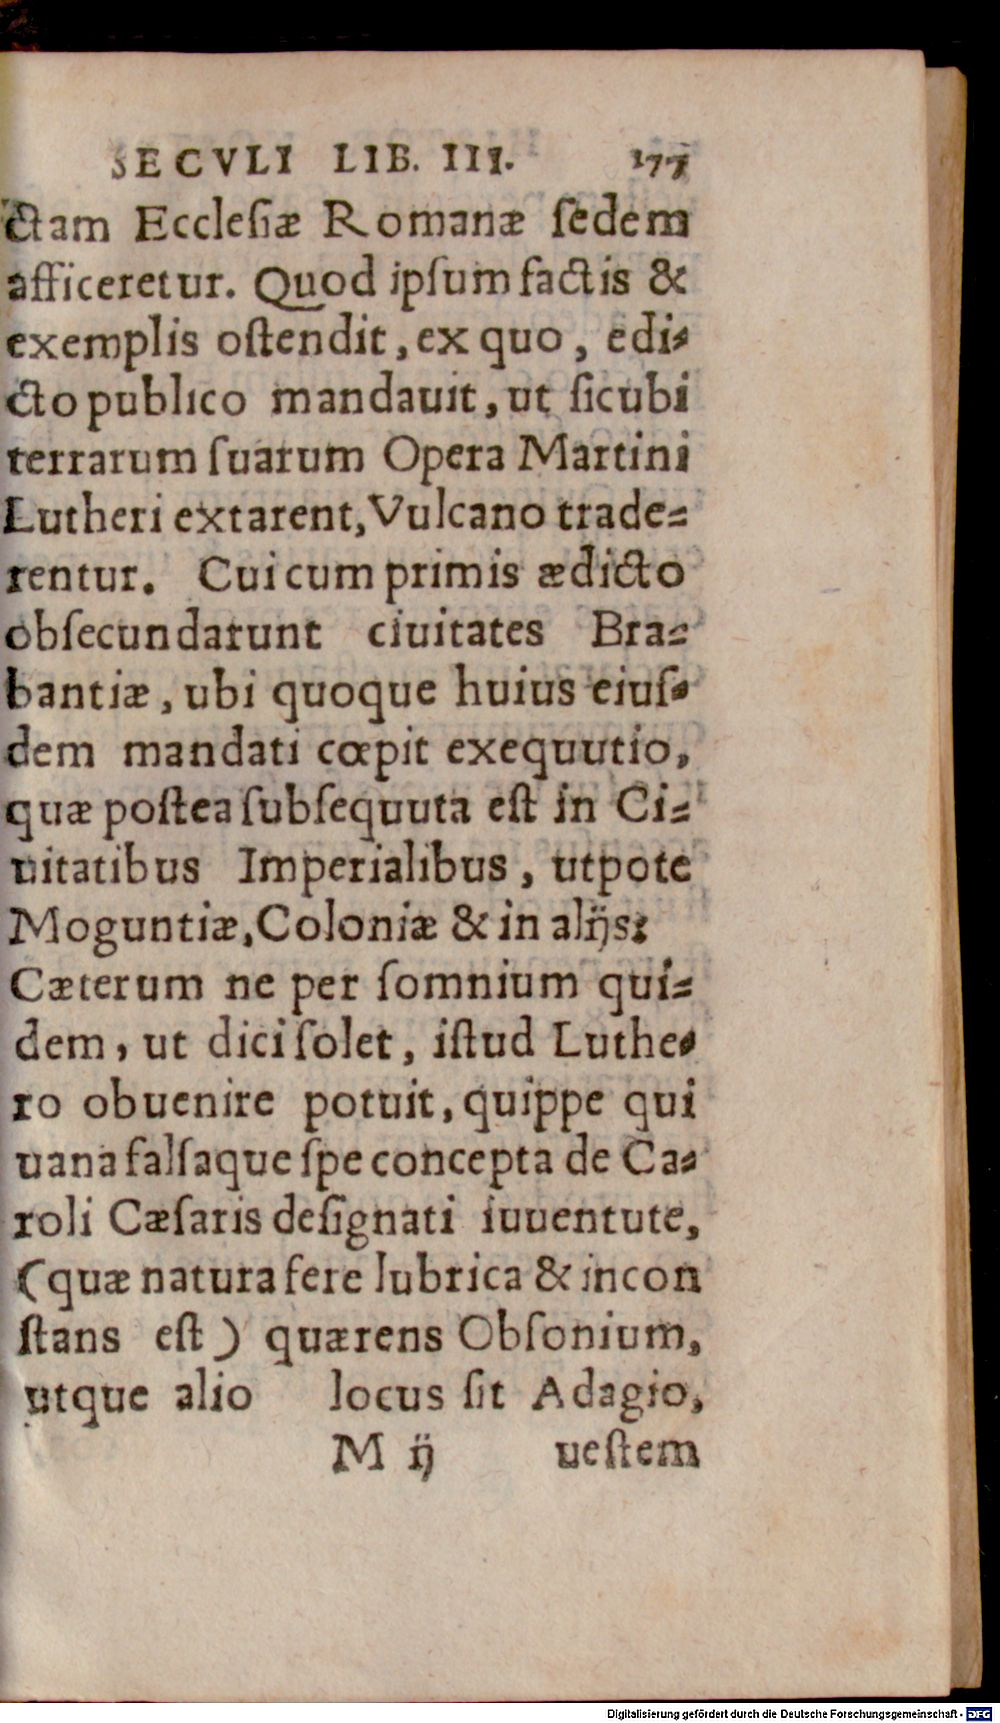 SECVLI LIB. III. 177
ctam Ecclesiæ Romanæ sedem
afficeretur. Quod ipsum factis &
exemplis ostendit, ex quo, edi-
cto publico mandauit, ut sicubi
terrarum suarum Opera Martini
Lutheri extarent, Vulcano trade-
rentur. Cui cum primis ædicto
obsecundarunt ciuitates Bra-
bantiæ, ubi quoque huius eius-
dem mandati cœpit exequutio,
quæ postea subsequuta est in Ci-
uitatibus Imperialibus, utpote
Moguntiæ, Coloniæ & in alijs:
Cæterum ne per somnium qui-
dem, ut dici solet, istud Luthe-
ro obuenire potuit, quippe qui
uana falsaque spe concepta de Ca-
roli Cæsaris designati iuuentute,
(quæ natura fere lubrica & incon
stans est) quærens Obsonium,
utque alio locus sit Adagio,
M ij uestem
Digitalisierung gefördert durch die Deutsche Forschungsgemeinschaft - DFG